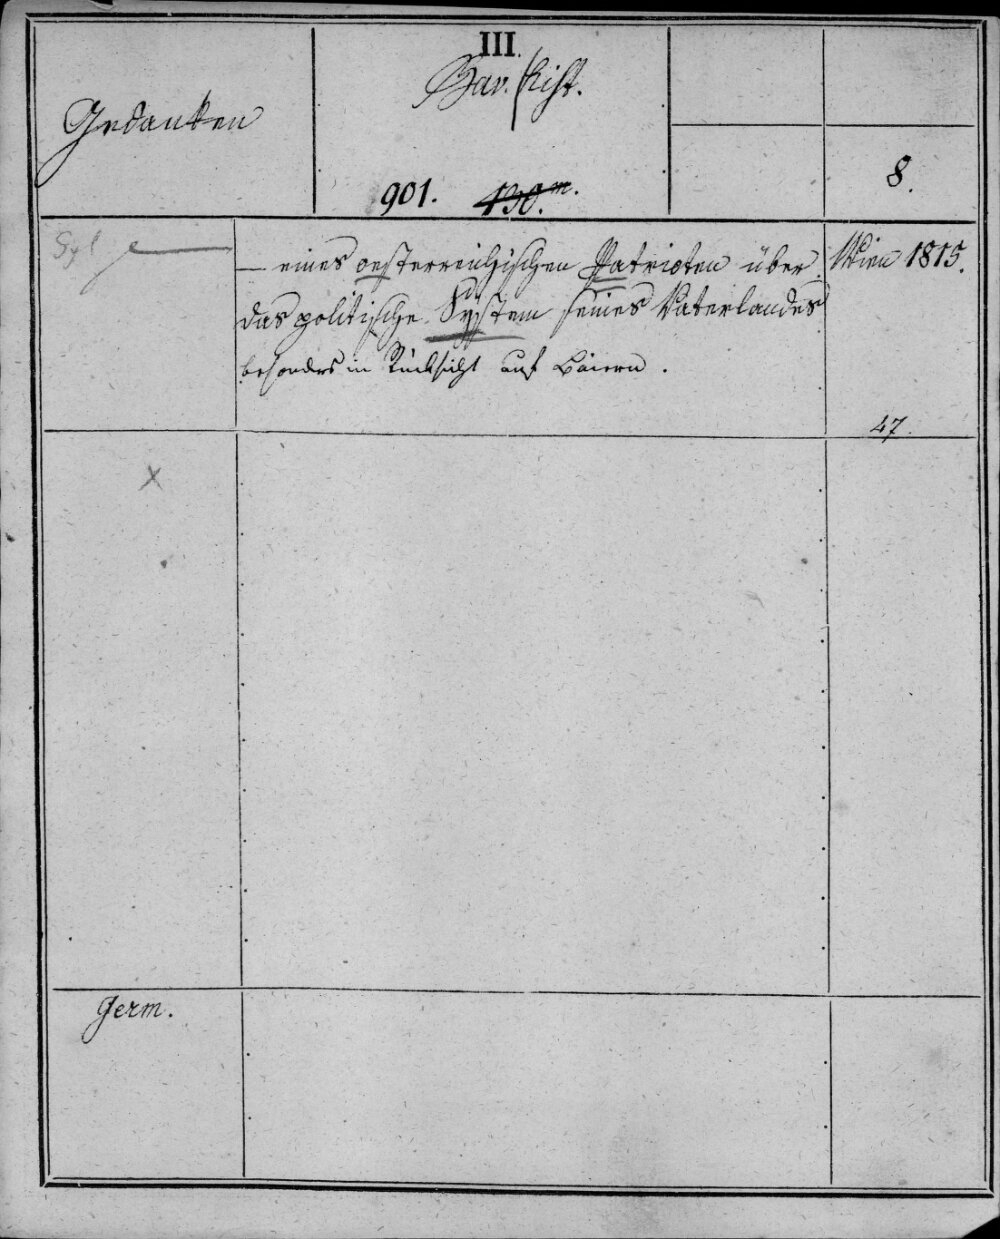 III.
Bav. Hist.
Gedanken
8.
901. 130.m.
— eines oesterreichischen Patrioten über
Wien 1815.
das politische System seines Vaterlandes
besonders in Rücksicht auf Baiern.
47.
x
Germ.